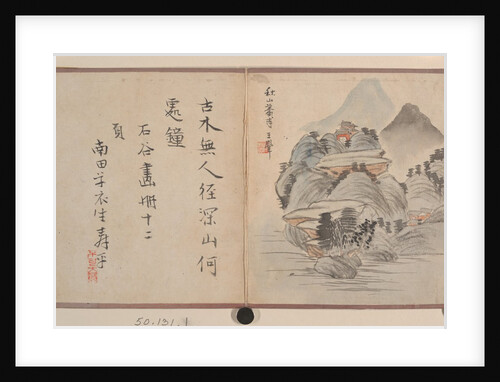 秋山蕭寺王翬
古木無人径深山何
處鐘
石谷畫冊十二
頁
南田草衣生壽平
50.131.1